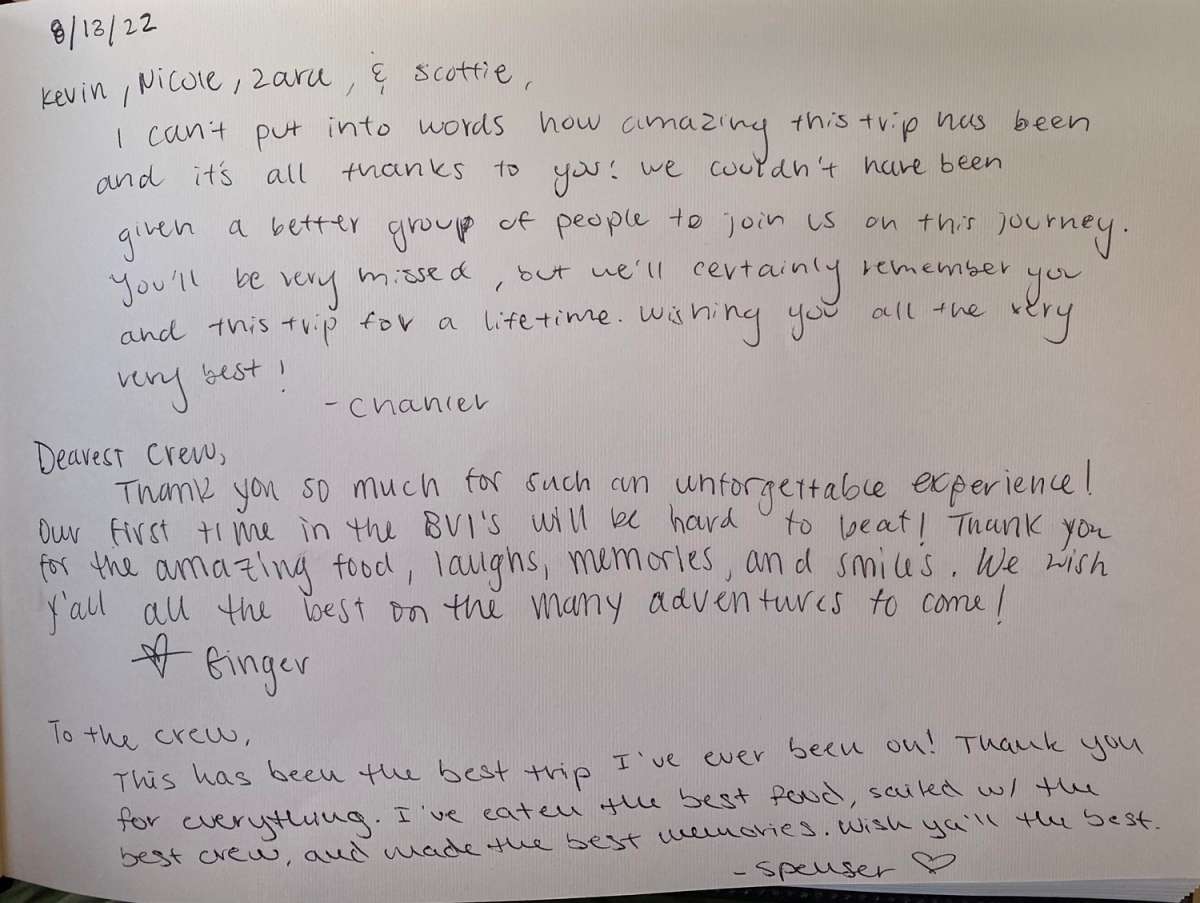 8/13/22
Kevin, Nicole, Zara, & Scottie,
I can't put into words how amazing this trip has been
and it's all thanks to you! we couldn't have been
given a better group of people to join us on this journey.
You'll be very missed, but we'll certainly remember you
and this trip for a lifetime. Wishing you all the very
very best!
- Chanler
Dearest Crew,
Thank you so much for such an unforgettable experience!
Our first time in the BVI's will be hard to beat! Thank you
for the amazing food, laughs, memories, and smiles. We wish
y'all all the best on the many adventures to come!
Ginger
To the crew,
This has been the best trip I've ever been on! Thank you
for everything. I've eaten the best food, sailed w/ the
best crew, and made the best memories. Wish ya'll the best.
- Spenser ♡